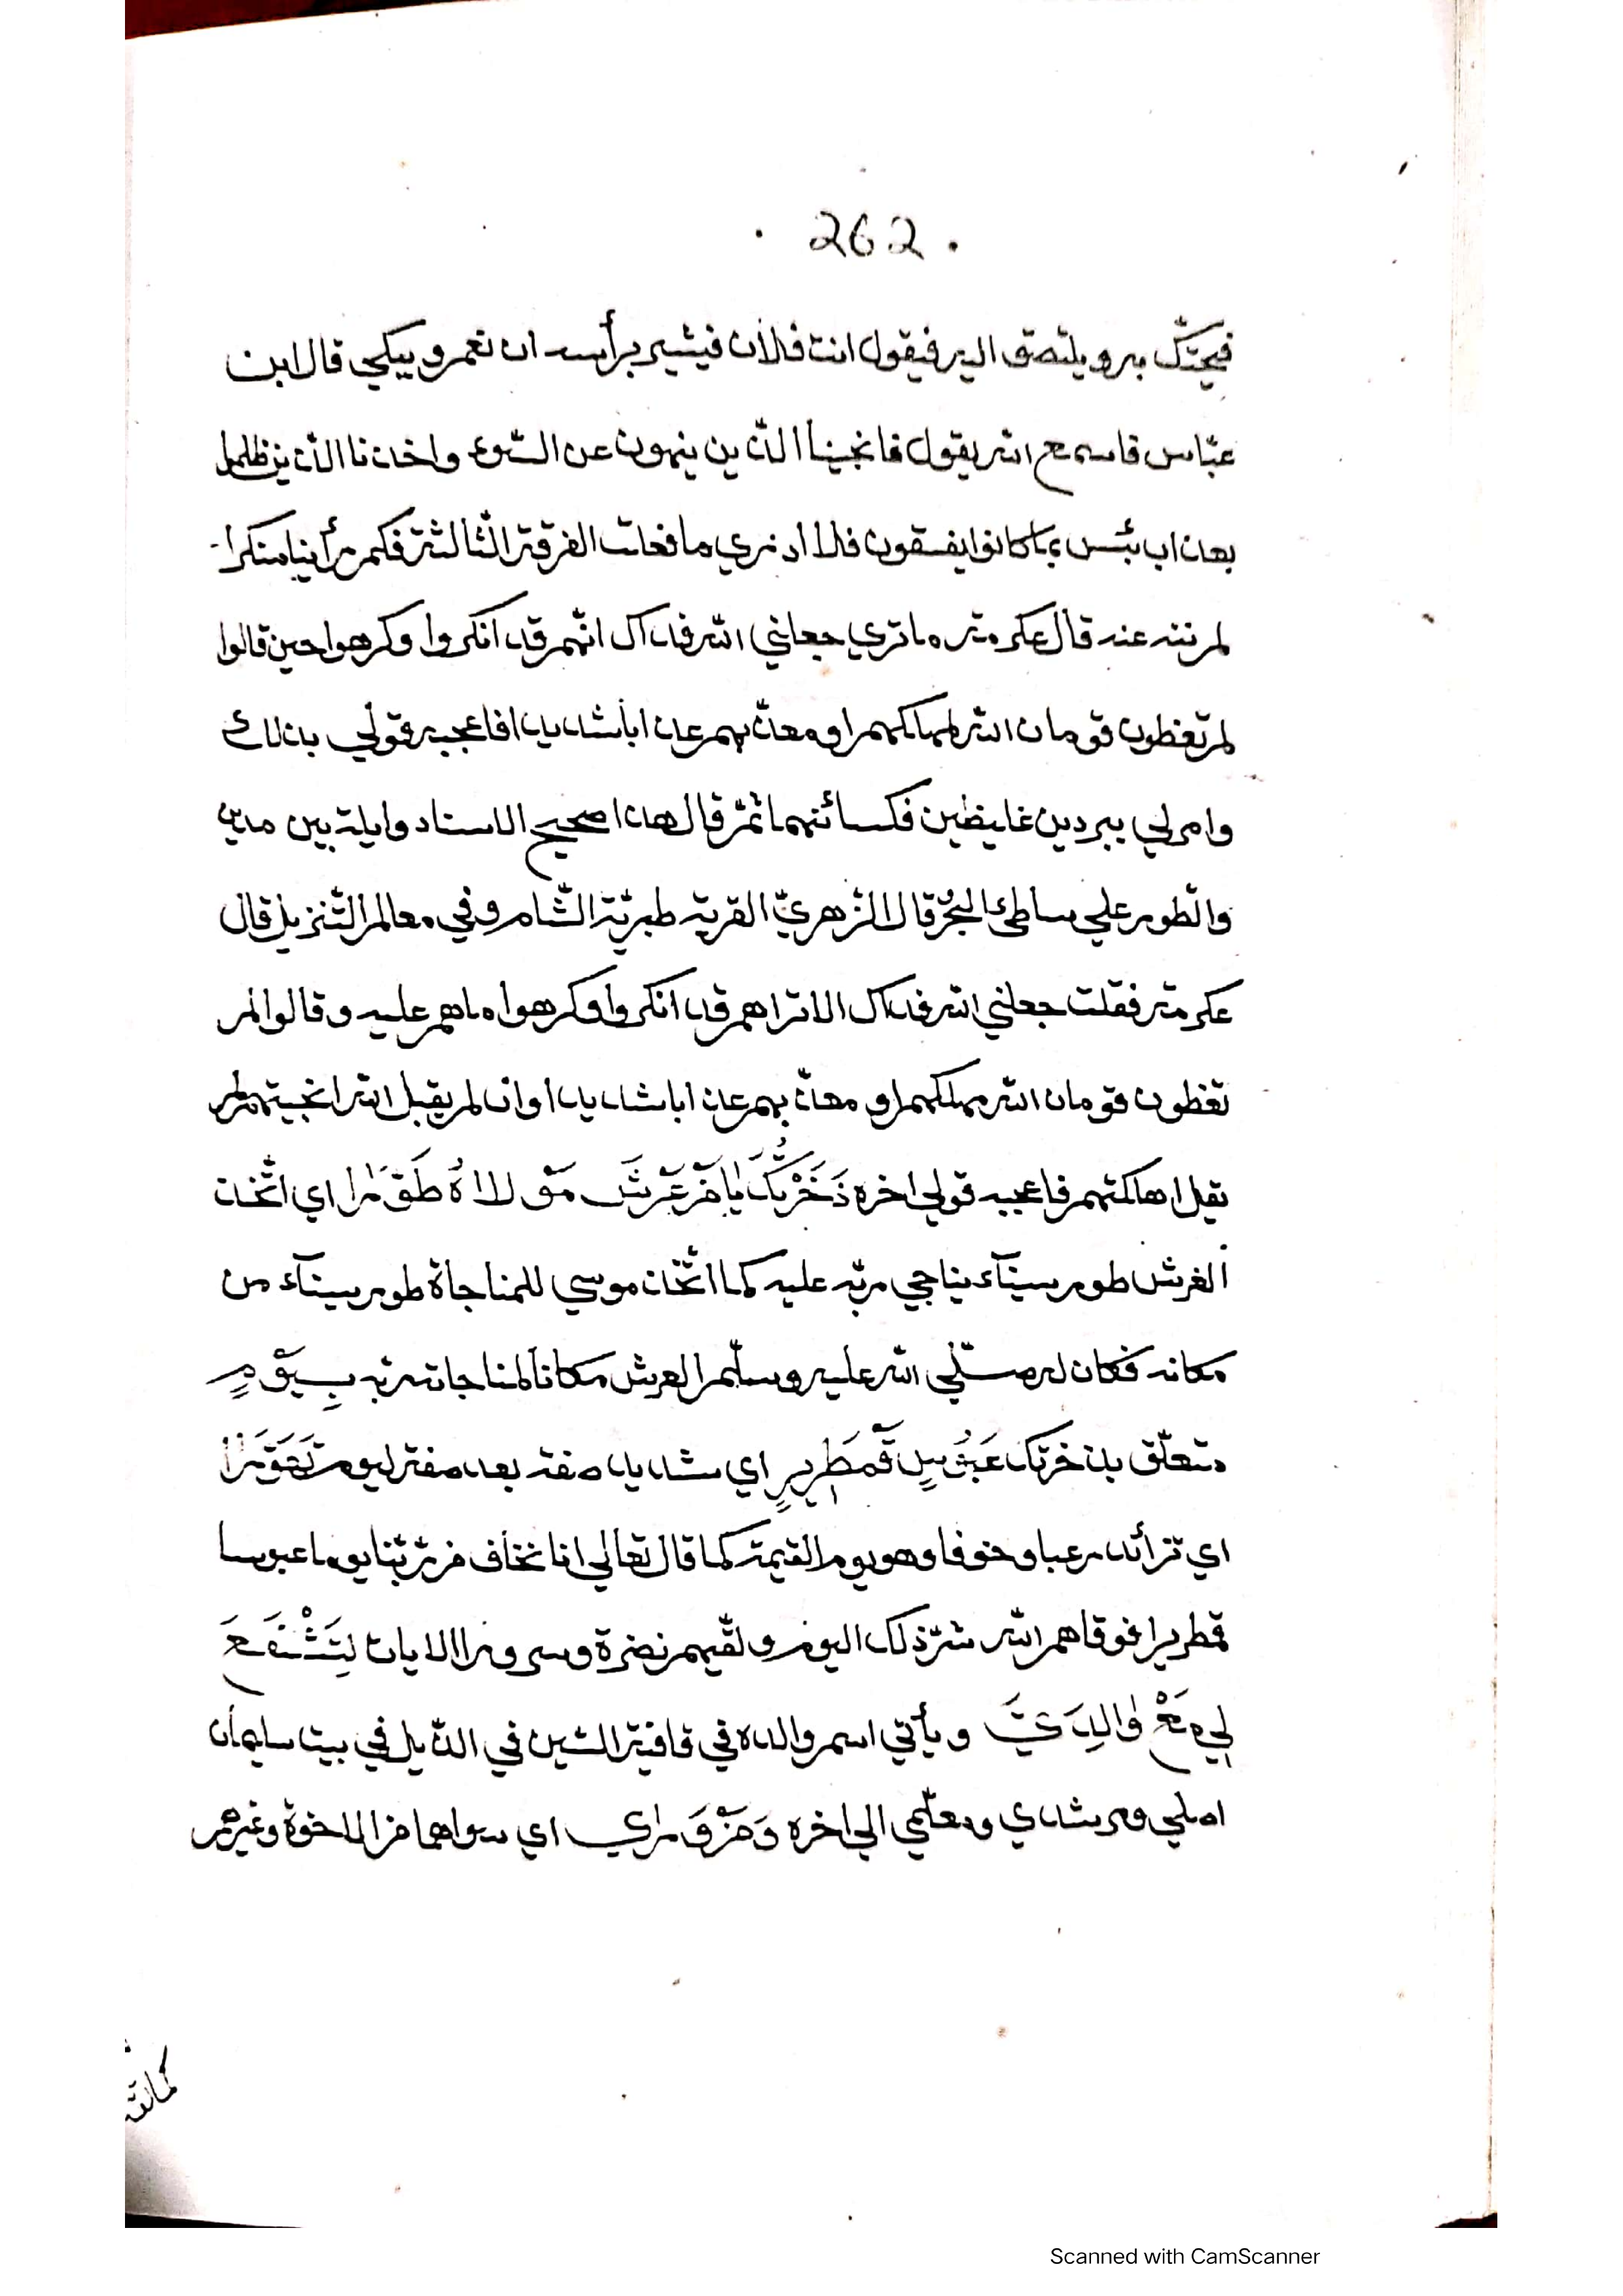 . 262 .
فيحتكّ به ويلتصق اليه فيقول انت فلان فيشير برأسه ان نعم ويبكي قال ابن
عبّاس فاسمع الله يقول فانجينا الذين ينهون عن السّوء واخذنا الذين ظلموا
بعذاب بئس بما كانوا يفسقون فلا ادري ما فعلت الفرقة الثّالثة فكم رأينا منكرا
لم ننه عنه قال عكرمة ما تري جعلني الله فداك انّهم قد انكروا وكرهوا حين قالوا
لم تعظون قوما ن الله مهلكهم او معذّبهم عذابا شديدا فاعجبه قولي بذلك
وامر لي ببردين غليظين فكسانهما ثمّ قال هذا صحيح الاسناد وايلة بين مدين
والطّور علي ساطئ البحر قال الزّهريّ القرية طبريّة الشّام وفي معالم التّنزيل قال
عكرمة فقلت جعلني الله فداك الا تراهم قد انكروا وكرهوا ما هم عليه وقالوا لم
تعظون قوما ن الله مهلكهم او معذّبهم عذابا شديدا وان لم يقبل الله انجيتهم ولم
يقل اهلكتهم فاعجبه قولي اخره ذَخَرْتُكَ يَا مَنْ عَرْشَ مَوْلَاهُ طَوْرًا اي اتّخذ
العرش طور سيناء يناجي ربّه عليه كما اتّخذ موسي للمناجاة طور سيناء من
مكانه فكان له صلّي الله عليه وسلّم العرش مكانا لمناجاته ربّه بِيَوْمٍ
متعلّق بذخرتك عَبُوسٍ قَمْطَرِيرٍ اي شديد صفة بعد صفة ليوم
اي تزائد رعبا وخوفا وهو يوم القيمة كما قال تعالي انا نخاف من ربّنا يوما عبوسا
قمطريرا فوقاهم الله شرّ ذلك اليوم ولقّيهم نضرة وسرورا الايات لِتَشْفَعَ
لِي مَعْ وَالِدَيَّ ويأتي اسم والده في قافية الشين في الذّيل في بيت سليمان
اصلي ومرشدي ومعلّمي الي اخره وَمَنْ وَرَاي اي سواهما من الاخوة وغيرهم
Scanned with CamScanner